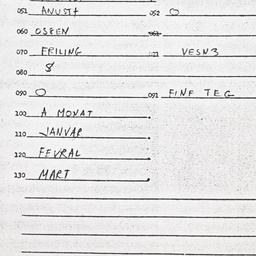 051 ANUSTA 052 O
060 OSPEN 061
070 FRILING VESN3
080 8
090 O 091 FINF TEG
100 A MONAT
110 JANVAR
120 FEVRAL
130 MART